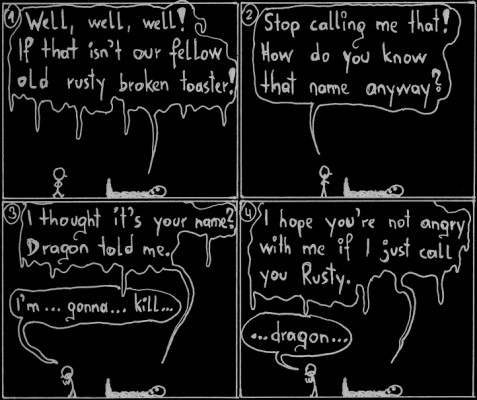 1
Well, well, well!
If that isn't our fellow
old rusty broken toaster!
2
Stop calling me that!
How do you know
that name anyway?
3
I thought it's your name?
Dragon told me.
I'm... gonna... kill...
4
I hope you're not angry
with me if I just call
you Rusty.
...dragon...